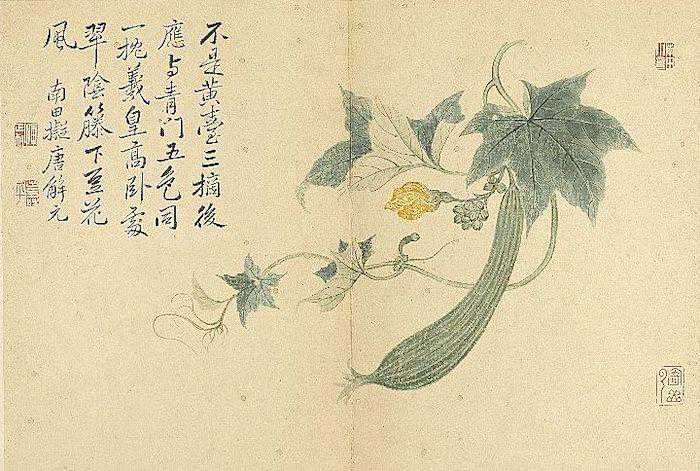 不是黄臺三摘後
應与青門五色同
一枕羲皇高卧處
翠陰籬下荳花
風
南田擬唐解元